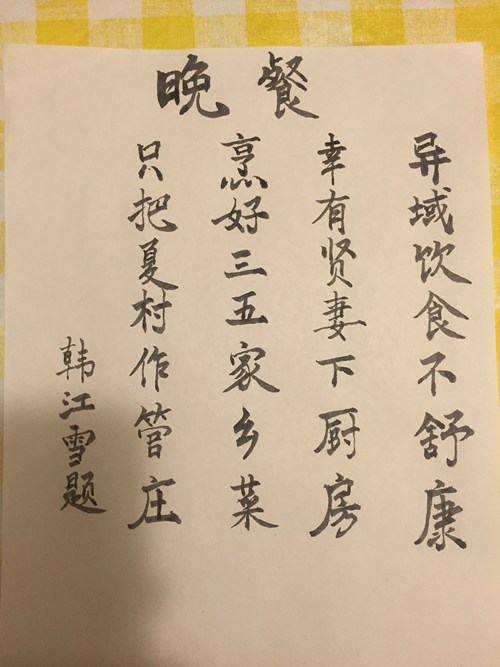 晚餐
异域饮食不舒康
幸有贤妻下厨房
烹好三五家乡菜
只把夏村作管庄
韩江雪题